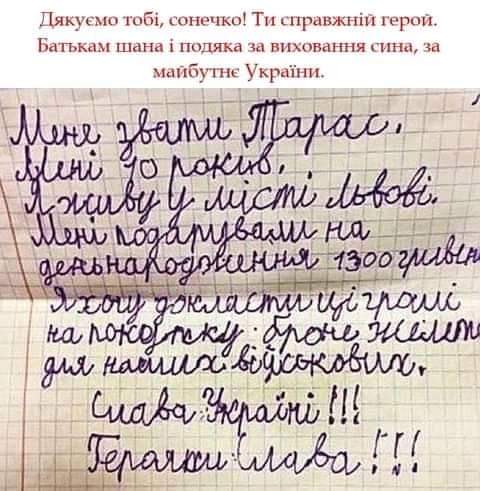 Дякуємо тобі, сонечко! Ти справжній герой.
Батькам шана і подяка за виховання сина, за
майбутнє України.
Мене звати Тарас.
Мені 10 років.
Я живу у місті Львові.
Мені подарували на
деньнародження 1300 гривен
Я хочу докласти ці гроші
на покупку броне жилета
для наших військових.
Слава Україні!!!
Героям Слава!!!